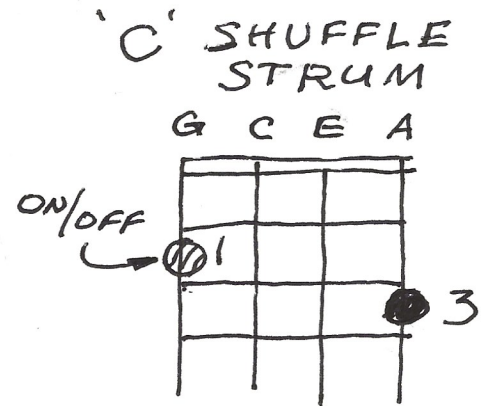 'C' SHUFFLE
STRUM
G C E A
ON/OFF
1
3